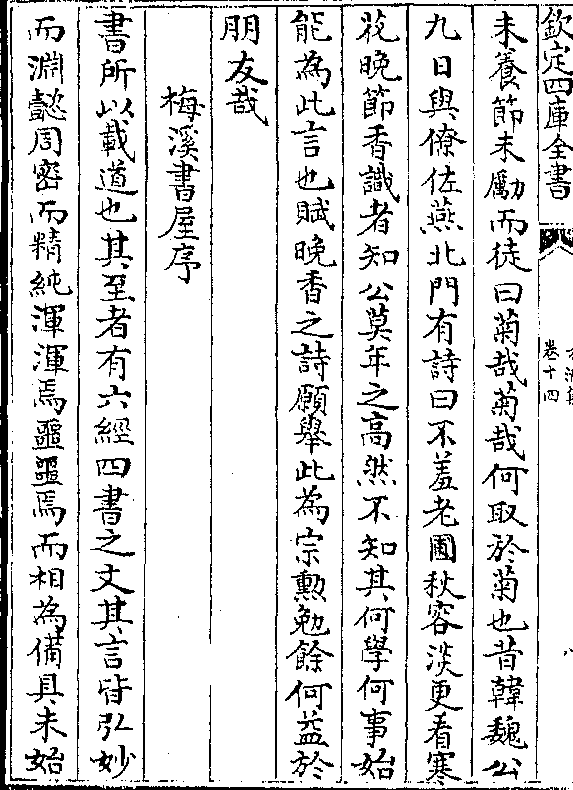 欽定四庫全書
卷十四
八
未養節未勵而徒曰菊哉菊哉何取於菊也昔韓魏公
九日與僚佐燕北門有詩曰不羞老圃秋容淡更看寒
花晚節香識者知公莫年之高然不知其何學何事始
能為此言也賦晚香之詩願舉此為宗勲勉餘何益於
朋友哉
梅溪書屋序
書所以載道也其至者有六經四書之文其言皆弘妙
而淵懿周密而精純渾渾焉噩噩焉而相為備具未始